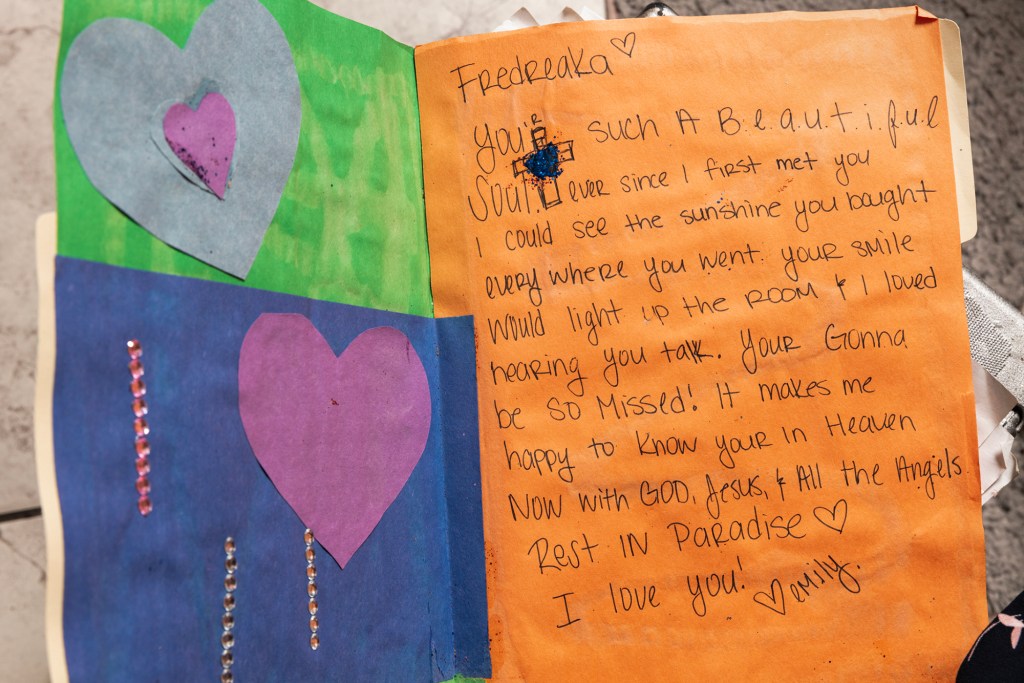 Fredreaka♡
your such A B.e.a.u.t.i.f.u.l
Soul. ever since I first met you
I could see the sunshine you bought
every where you went. your smile
would light up the room & I loved
hearing you talk. Your Gonna
be so Missed! It makes me
happy to know your in Heaven
Now with GOD, Jesus, & All the Angels.
Rest IN Paradise ♡
I love you! ♡ emily.